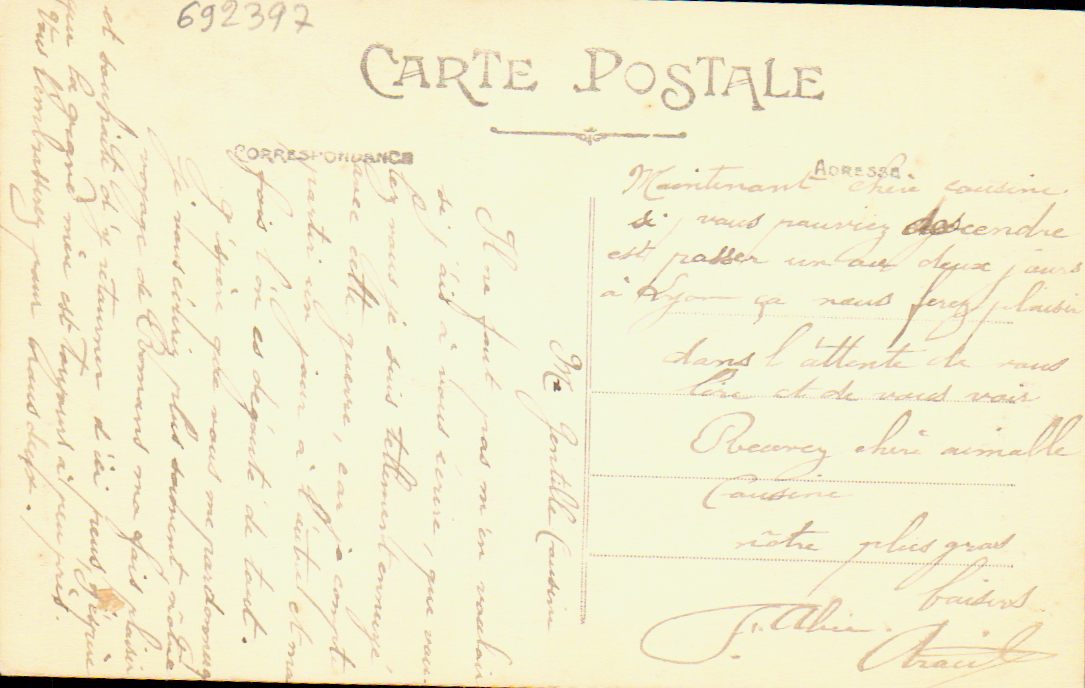 692397
CARTE POSTALE
CORRESPONDANCE
ADRESSE
Ma Gentille Cousine
Il ne faut pas m'en vouloir
si j'ais à vous écrire, que vou-
lez vous je suis tellement ennuyé,
avec cette guerre, car je compte
partir un jour à l'autre et ma
fois l'on es dégouté de tout.
J'éspère que vous me pardonnez
Je vous écrirez plus souvent, nôtre
voyage de Romans ma fais plaisir
et souhaite d'y retourner d'ici peus j'éspère
que la grand mère est toujours à peu près.
Vous l'embrasserez pour nous deux.
Maintenant chère cousine
si vous pouviez descendre
est passer un ou deux jours
à Lyon ça nous ferez plaisir
dans l'attente de vous
lire et de vous voir
Recevez chère aimable
Cousine
nôtre plus gros
baisers